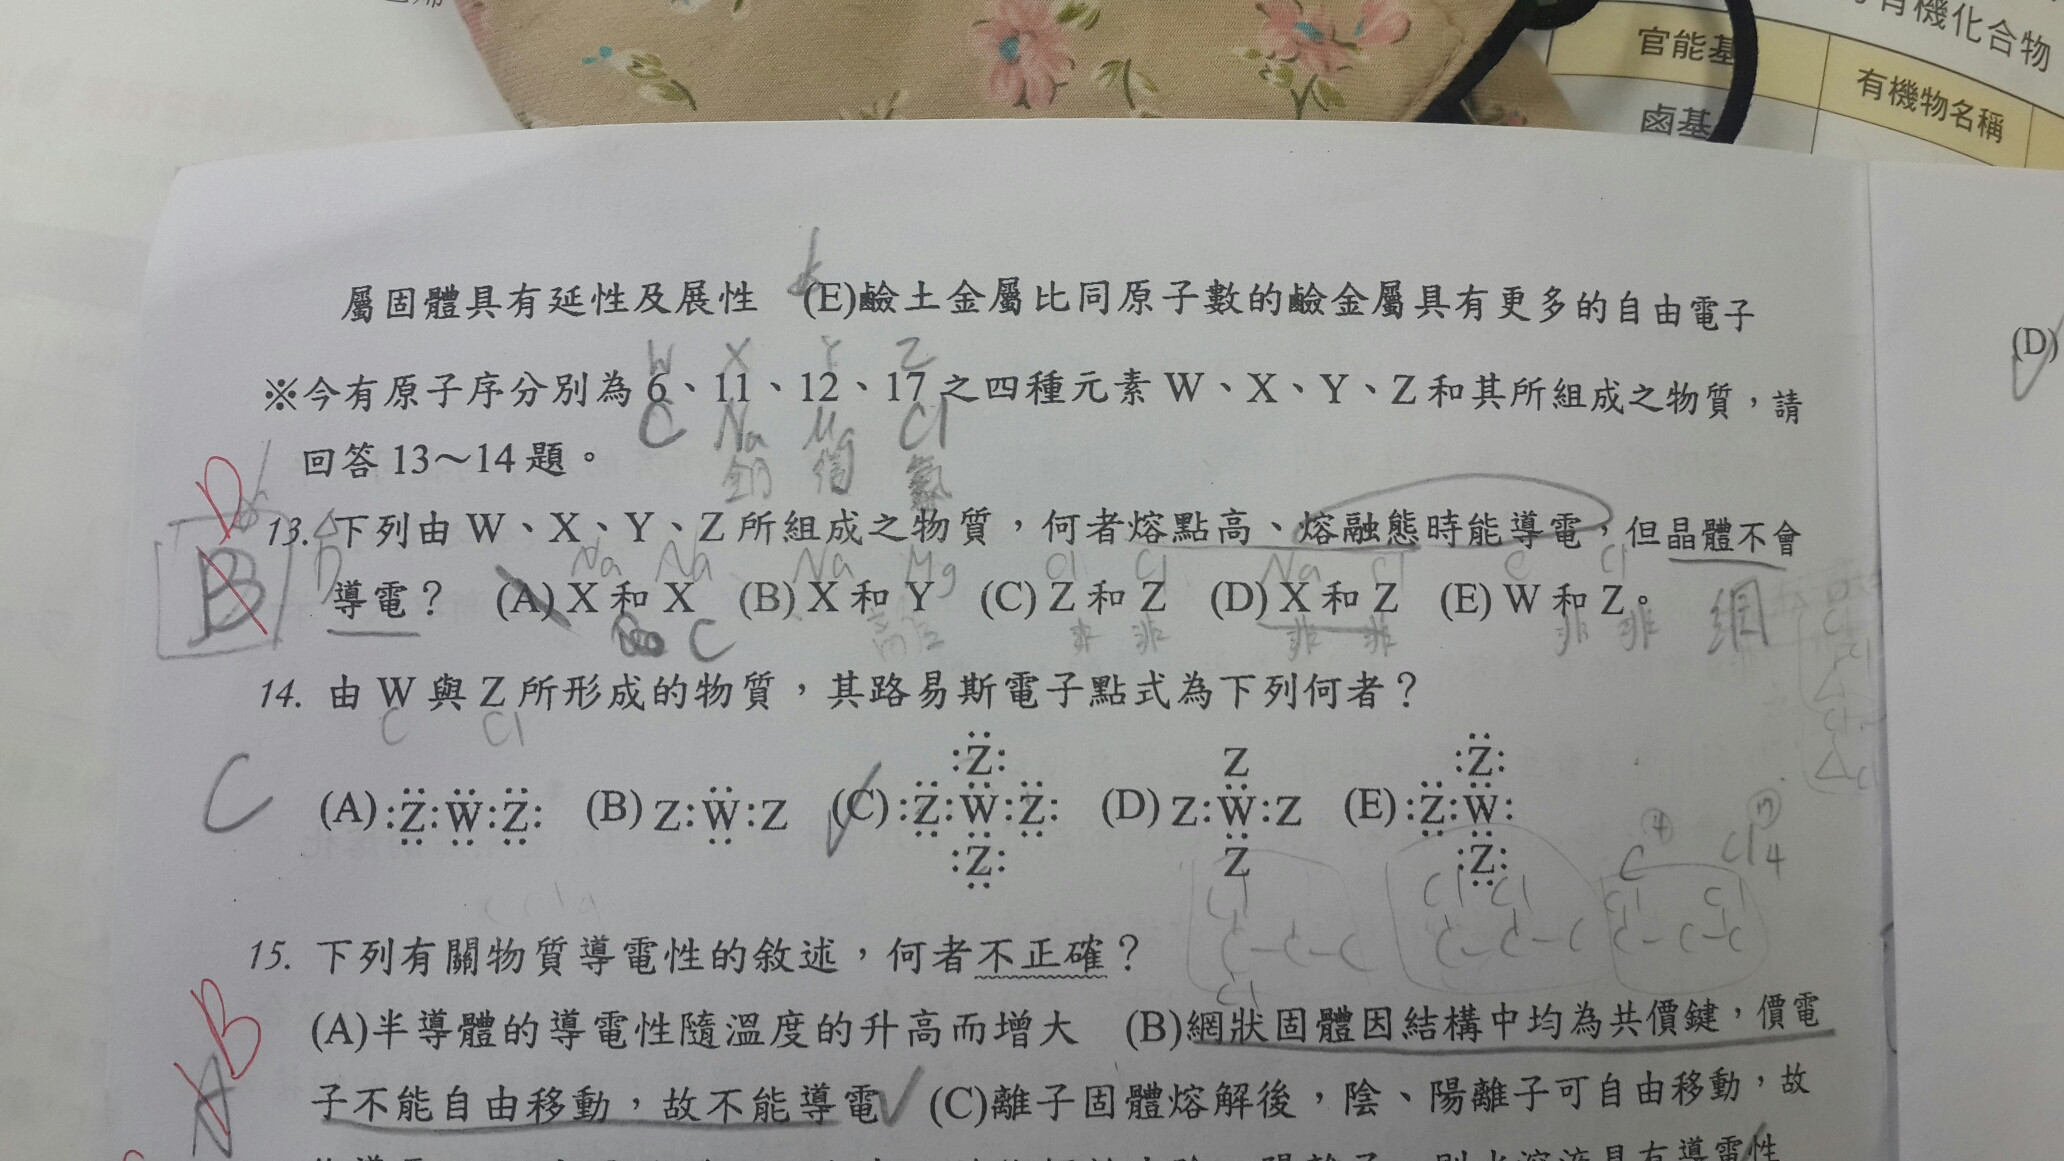 有機化合物
官能基
有機物名稱
鹵基
屬固體具有延性及展性 (E)鹼土金屬比同原子數的鹼金屬具有更多的自由電子
(D)
W X Y Z
※今有原子序分別為6、11、12、17之四種元素W、X、Y、Z和其所組成之物質,請
C Na Mg Cl
回答13~14題。
鈉 鎂 氯
D
13. 下列由W、X、Y、Z所組成之物質,何者熔點高、熔融態時能導電,但晶體不會
Na Na Na Mg Cl Cl Na Cl C Cl
B
導電? (A) X和X (B) X和Y (C) Z和Z (D) X和Z (E) W和Z。
C 非 非 非 非 非 非 網
14. 由W與Z所形成的物質,其路易斯電子點式為下列何者?
C Cl
C
(A) :Z:W:Z: (B) Z:W:Z (C) :Z:W:Z: (D) Z:W:Z (E) :Z:W:
15. 下列有關物質導電性的敘述,何者不正確?
B
(A)半導體的導電性隨溫度的升高而增大 (B)網狀固體因結構中均為共價鍵,價電
A
子不能自由移動,故不能導電 (C)離子固體熔解後,陰、陽離子可自由移動,故